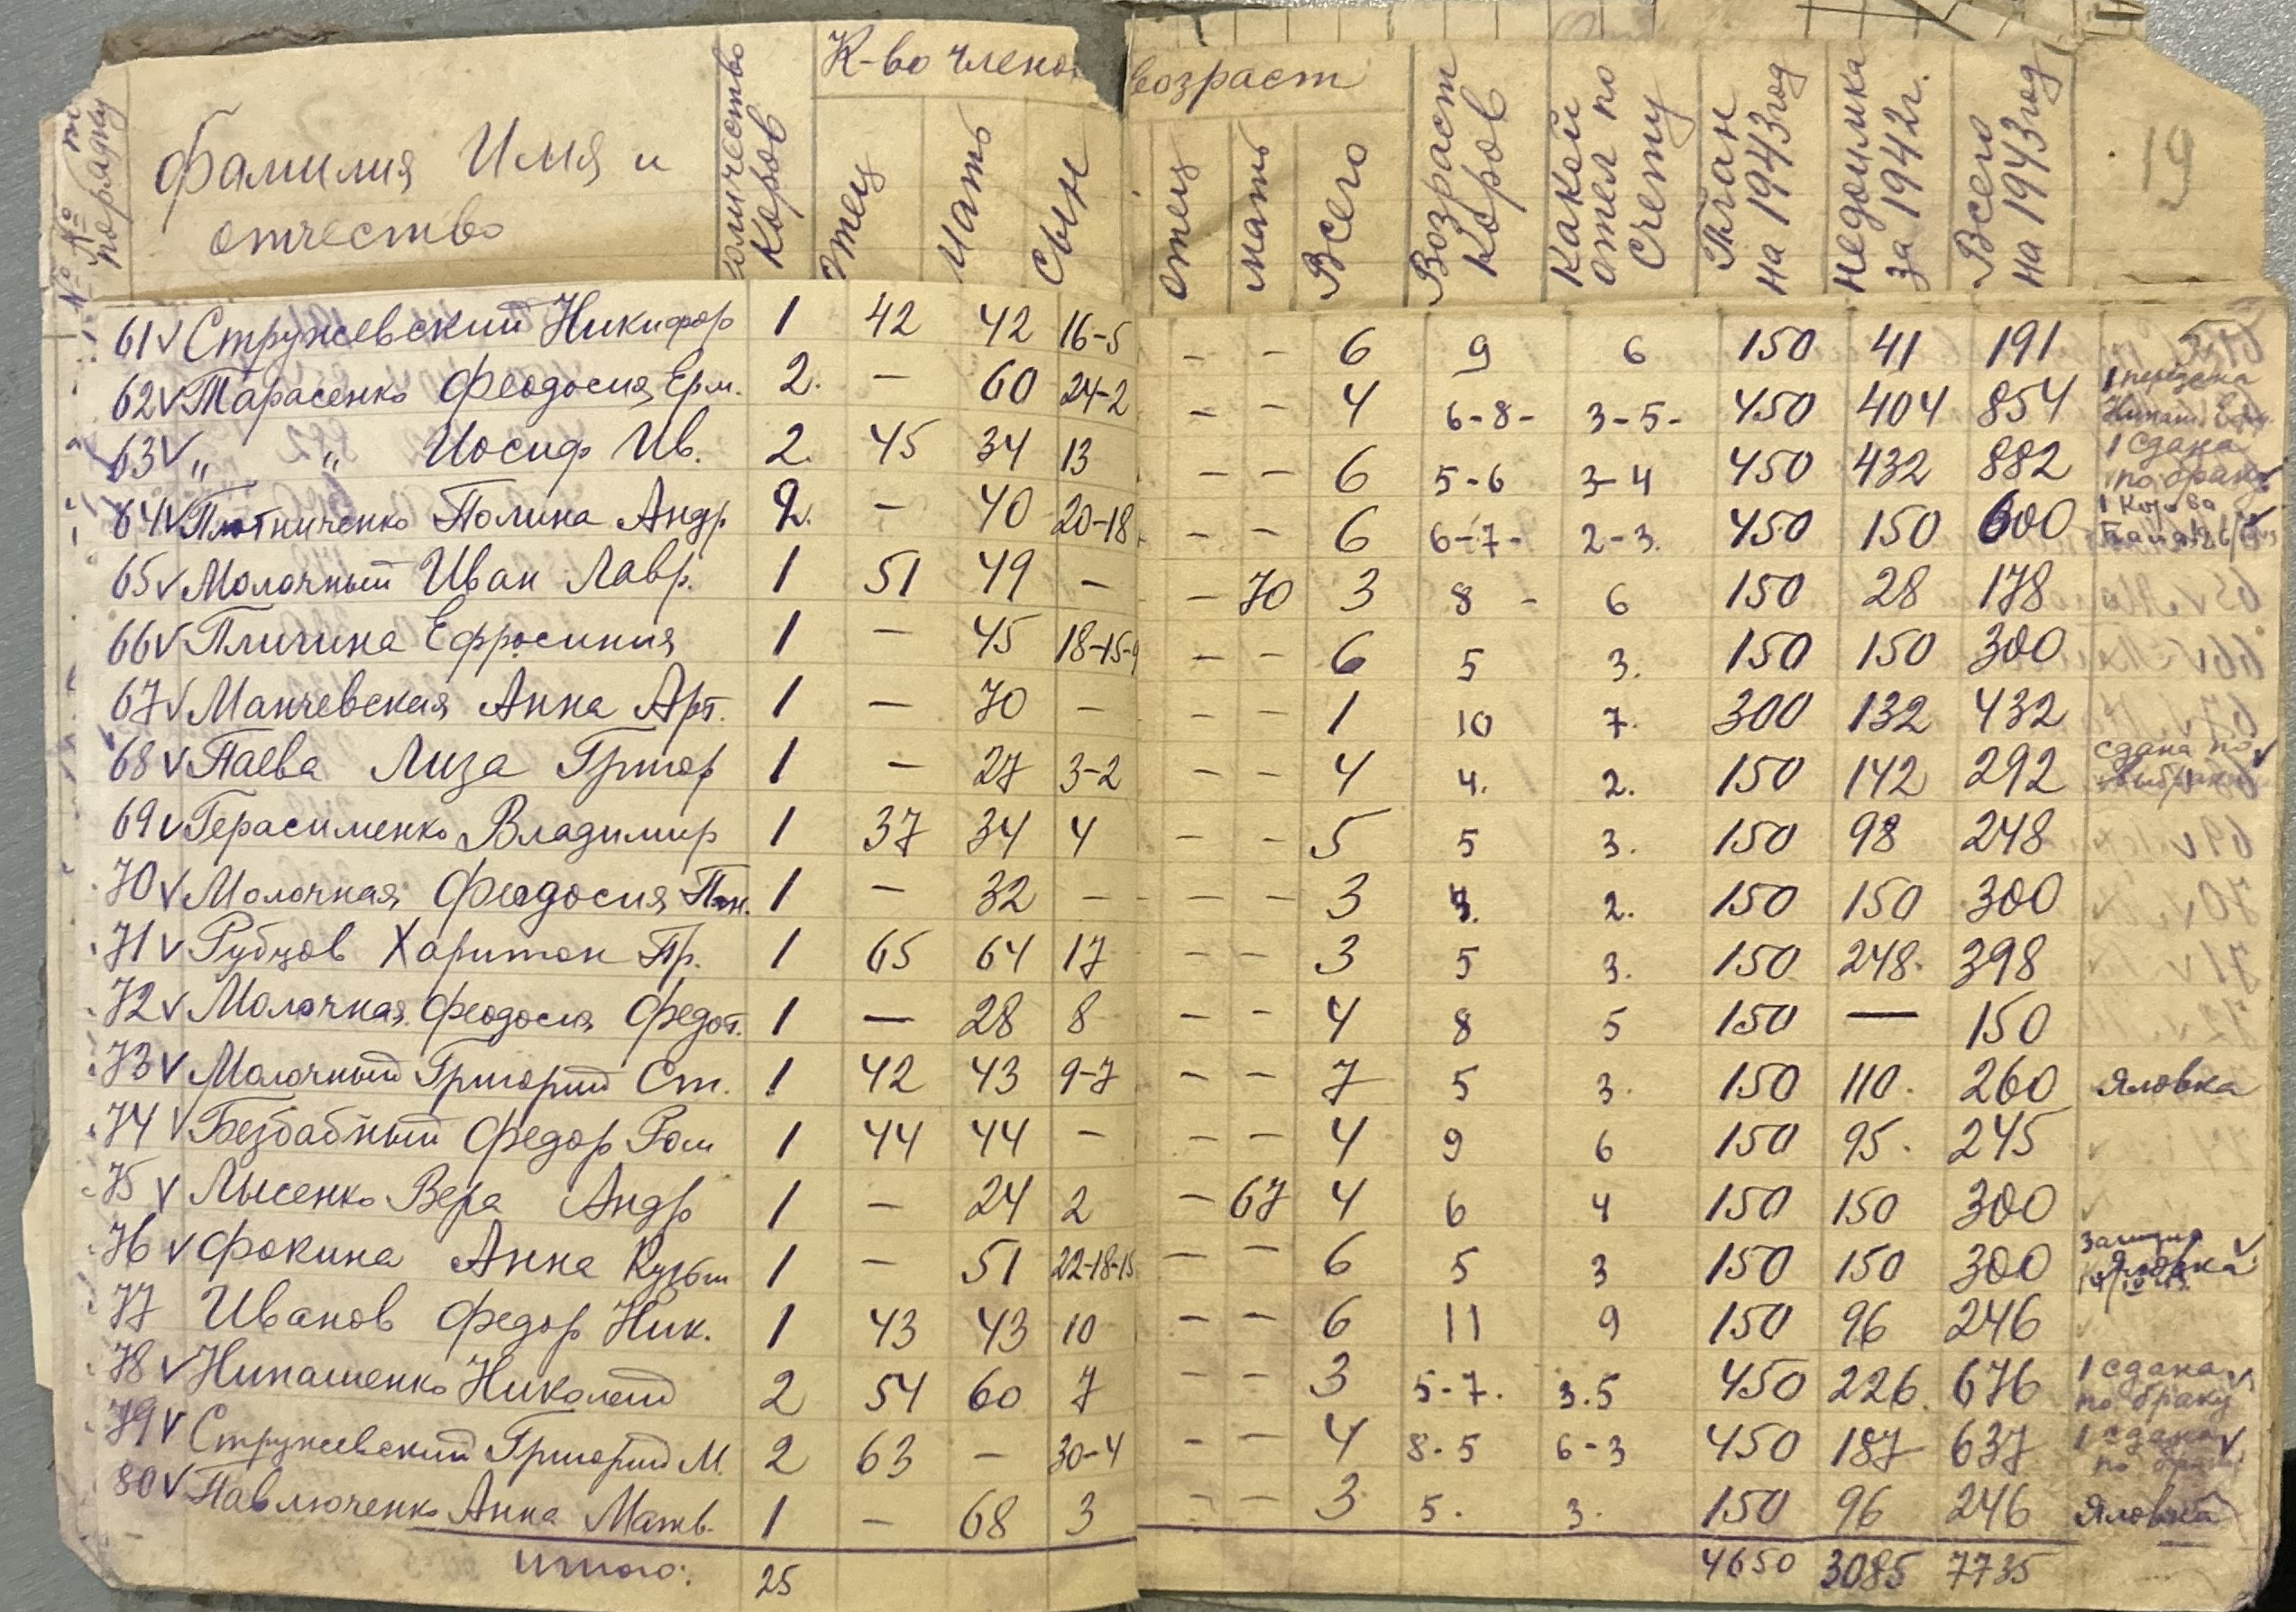 №№ по порядку Фамилия Имя и отчество количество коров К-во члено возраст
отец мать сын отец мать Всего Возраст коров Какой отел по счету План на 1943 год недоимка за 1942 г. Всего на 1943 год 19
61 v Стружевский Никифор 1 42 42 16-5 - - 6 9 6 150 41 191
62 v Тарасенко Феодосия Ерм. 2. - 60 24-2 - - 4 6-8- 3-5- 450 404 854 1
63 v " " Иосиф Ив. 2. 45 34 13 - - 6 5-6 3-4 450 432 882 1 сдана по браку v
64 v Плотниченко Полина Андр. 2. - 40 20-18 - - 6 6-7- 2-3. 450 150 600 1 Корова v
65 v Молочный Иван Лавр. 1 51 49 - - 70 3 8 - 6 150 28 178
66 v Пличина Ефросиния 1 - 45 18-15-9 - - 6 5 3. 150 150 300
67 v Манчевская Анна Арт. 1 - 70 - - - 1 10 7. 300 132 432
68 v Паева Лиза Григор 1 - 27 3-2 - - 4 4. 2. 150 142 292 сдана по v
69 v Герасименко Владимир 1 37 34 4 - - 5 5 3. 150 98 248
70 v Молочная Феодосия Пан. 1 - 32 - - - 3 4. 2. 150 150 300
71 v Рубцов Харитон Пр. 1 65 64 17 - - 3 5 3. 150 248. 398
72 v Молочная Феодосия Федот. 1 - 28 8 - - 4 8 5 150 - 150
73 v Молочный Григорий Ст. 1 42 43 9-7 - - 7 5 3. 150 110. 260 Яловка
74 v Безбабный Федор Ром 1 44 44 - - - 4 9 6 150 95. 245
75 v Лысенко Вера Андр 1 - 24 2 - 67 4 6 4 150 150 300
76 v Фокина Анна Кузьм 1 - 51 22-18-15 - - 6 5 3 150 150 300 Яловка v
77 Иванов Федор Ник. 1 43 43 10 - - 6 11 9 150 96 246
78 v Нипашенко Николай 2 54 60 7 - - 3 5-7. 3.5 450 226. 676 1 сдана v по браку
79 v Стружевский Григорий М. 2 63 - 30-4 - - 4 8-5 6-3 450 187 637 1 сдана v по браку
80 v Павлюченко Анна Матв. 1 - 68 3 - - 3 5. 3. 150 96 246 Яловка
итого: 25 4650 3085 7735